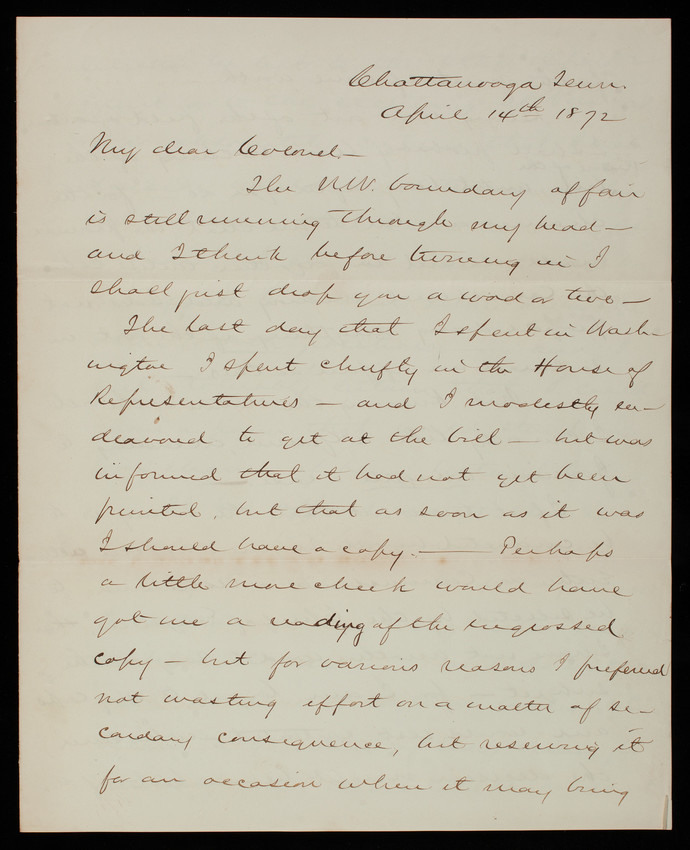 Chattanooga Tenn.
April 14th 1872
My dear Colonel—
The N.W. boundary affair
is still running through my head—
and I think before turning in I
shall just drop you a word or two—
The last day that I spent in Wash-
ington I spent chiefly in the House of
Representatives — and I modestly en-
deavored to get at the bill — but was
informed that it had not yet been
printed, but that as soon as it was
I should have a copy. — Perhaps
a little more cheek would have
got me a reading of the engrossed
copy — but for various reasons I preferred
not wasting effort on a matter of se-
condary consequence, but reserving it
for an occasion when it may bring